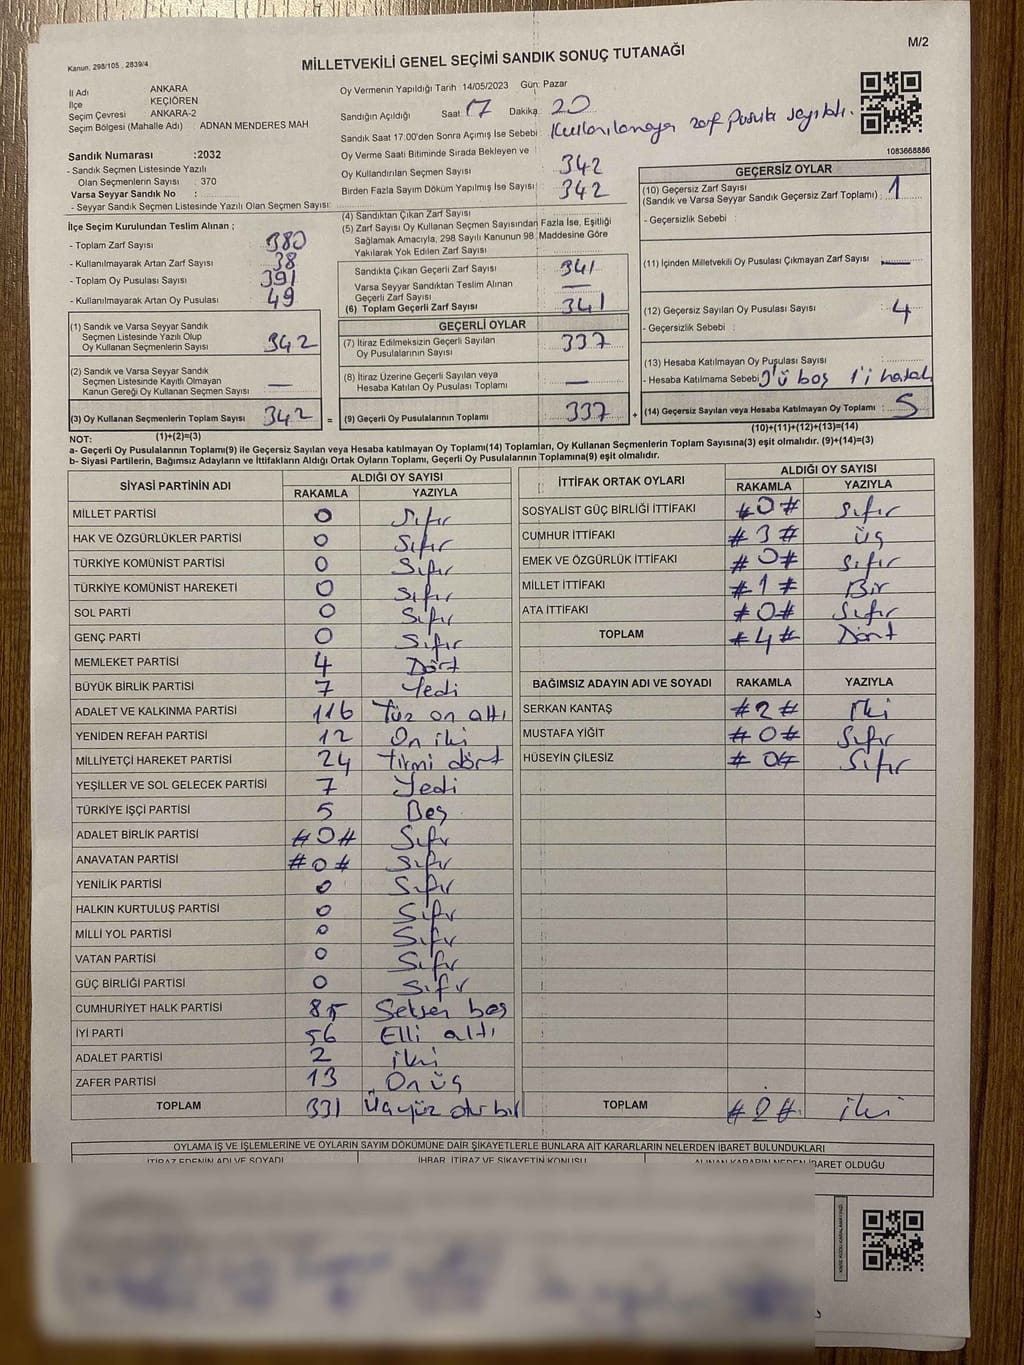 M/2
Kanun. 298/105 , 2839/4
MİLLETVEKİLİ GENEL SEÇİMİ SANDIK SONUÇ TUTANAĞI
İl Adı ANKARA
İlçe KEÇİÖREN
Seçim Çevresi ANKARA-2
Seçim Bölgesi (Mahalle Adı) ADNAN MENDERES MAH
Sandık Numarası :2032
- Sandık Seçmen Listesinde Yazılı
Olan Seçmenlerin Sayısı : 370
Varsa Seyyar Sandık No :
- Seyyar Sandık Seçmen Listesinde Yazılı Olan Seçmen Sayısı:
Oy Vermenin Yapıldığı Tarih :14/05/2023 Gün: Pazar
Sandığın Açıldığı Saat: 17 Dakika: 20
Sandık Saat 17:00'den Sonra Açımış İse Sebebi: Kullanılamaya zarf pusula sayıldı.
Oy Verme Saati Bitiminde Sırada Bekleyen ve
Oy Kullandırılan Seçmen Sayısı 342
Birden Fazla Sayım Döküm Yapılmış İse Sayısı: 342
1083668886
İlçe Seçim Kurulundan Teslim Alınan ;
- Toplam Zarf Sayısı : 380
- Kullanılmayarak Artan Zarf Sayısı : 38
- Toplam Oy Pusulası Sayısı : 391
- Kullanılmayarak Artan Oy Pusulası : 49
(1) Sandık ve Varsa Seyyar Sandık
Seçmen Listesinde Yazılı Olup
Oy Kullanan Seçmenlerin Sayısı : 342
(2) Sandık ve Varsa Seyyar Sandık
Seçmen Listesinde Kayıtlı Olmayan
Kanun Gereği Oy Kullanan Seçmen Sayısı : —
(3) Oy Kullanan Seçmenlerin Toplam Sayısı : 342
(1)+(2)=(3)
(4) Sandıktan Çıkan Zarf Sayısı
(5) Zarf Sayısı Oy Kullanan Seçmen Sayısından Fazla İse, Eşitliği
Sağlamak Amacıyla, 298 Sayılı Kanunun 98. Maddesine Göre
Yakılarak Yok Edilen Zarf Sayısı :
Sandıkla Çıkan Geçerli Zarf Sayısı : 341
Varsa Seyyar Sandıktan Teslim Alınan
Geçerli Zarf Sayısı : —
(6) Toplam Geçerli Zarf Sayısı : 341
GEÇERLİ OYLAR
(7) İtiraz Edilmeksizin Geçerli Sayılan
Oy Pusulalarının Sayısı : 337
(8) İtiraz Üzerine Geçerli Sayılan veya
Hesaba Katılan Oy Pusulası Toplamı : —
= (9) Geçerli Oy Pusulalarının Toplamı : 337
GEÇERSİZ OYLAR
(10) Geçersiz Zarf Sayısı
(Sandık ve Varsa Seyyar Sandık Geçersiz Zarf Toplamı) : 1
- Geçersizlik Sebebi :
(11) İçinden Milletvekili Oy Pusulası Çıkmayan Zarf Sayısı : —
(12) Geçersiz Sayılan Oy Pusulası Sayısı : 4
- Geçersizlik Sebebi :
(13) Hesaba Katılmayan Oy Pusulası Sayısı :
- Hesaba Katılmama Sebebi: 3'ü boş 1'i hatalı
+ (14) Geçersiz Sayılan veya Hesaba Katılmayan Oy Toplamı : 5
(10)+(11)+(12)+(13)=(14)
NOT:
a- Geçerli Oy Pusulalarının Toplamı(9) ile Geçersiz Sayılan veya Hesaba katılmayan Oy Toplamı(14) Toplamları, Oy Kullanan Seçmenlerin Toplam Sayısına(3) eşit olmalıdır. (9)+(14)=(3)
b- Siyasi Partilerin, Bağımsız Adayların ve İttifakların Aldığı Ortak Oyların Toplamı, Geçerli Oy Pusulalarının Toplamına(9) eşit olmalıdır.
SİYASİ PARTİNİN ADI ALDIĞI OY SAYISI
RAKAMLA YAZIYLA
MİLLET PARTİSİ 0 Sıfır
HAK VE ÖZGÜRLÜKLER PARTİSİ 0 Sıfır
TÜRKİYE KOMÜNİST PARTİSİ 0 Sıfır
TÜRKİYE KOMÜNİST HAREKETİ 0 Sıfır
SOL PARTİ 0 Sıfır
GENÇ PARTİ 0 Sıfır
MEMLEKET PARTİSİ 4 Dört
BÜYÜK BİRLİK PARTİSİ 7 Yedi
ADALET VE KALKINMA PARTİSİ 116 Yüz on altı
YENİDEN REFAH PARTİSİ 12 On iki
MİLLİYETÇİ HAREKET PARTİSİ 24 Yirmi dört
YEŞİLLER VE SOL GELECEK PARTİSİ 7 Yedi
TÜRKİYE İŞÇİ PARTİSİ 5 Beş
ADALET BİRLİK PARTİSİ #0# Sıfır
ANAVATAN PARTİSİ #0# Sıfır
YENİLİK PARTİSİ 0 Sıfır
HALKIN KURTULUŞ PARTİSİ 0 Sıfır
MİLLİ YOL PARTİSİ 0 Sıfır
VATAN PARTİSİ 0 Sıfır
GÜÇ BİRLİĞİ PARTİSİ 0 Sıfır
CUMHURİYET HALK PARTİSİ 85 Seksen beş
İYİ PARTİ 56 Elli altı
ADALET PARTİSİ 2 iki
ZAFER PARTİSİ 13 On üç
TOPLAM 331 Üçyüz otur bir
İTTİFAK ORTAK OYLARI ALDIĞI OY SAYISI
RAKAMLA YAZIYLA
SOSYALİST GÜÇ BİRLİĞİ İTTİFAKI #0# Sıfır
CUMHUR İTTİFAKI #3# üç
EMEK VE ÖZGÜRLÜK İTTİFAKI #0# Sıfır
MİLLET İTTİFAKI #1# Bir
ATA İTTİFAKI #0# Sıfır
TOPLAM #4# Dört
BAĞIMSIZ ADAYIN ADI VE SOYADI RAKAMLA YAZIYLA
SERKAN KANTAŞ #2# İki
MUSTAFA YİĞİT #0# Sıfır
HÜSEYİN ÇİLESİZ #0# Sıfır
TOPLAM #2# iki
OYLAMA İŞ VE İŞLEMLERİNE VE OYLARIN SAYIM DÖKÜMÜNE DAİR ŞİKAYETLERLE BUNLARA AİT KARARLARIN NELERDEN İBARET BULUNDUKLARI
İTİRAZ EDENİN ADI VE SOYADI İHBAR, İTİRAZ VE ŞİKAYETİN KONUSU ALINAN KARARIN NEDEN İBARET OLDUĞU